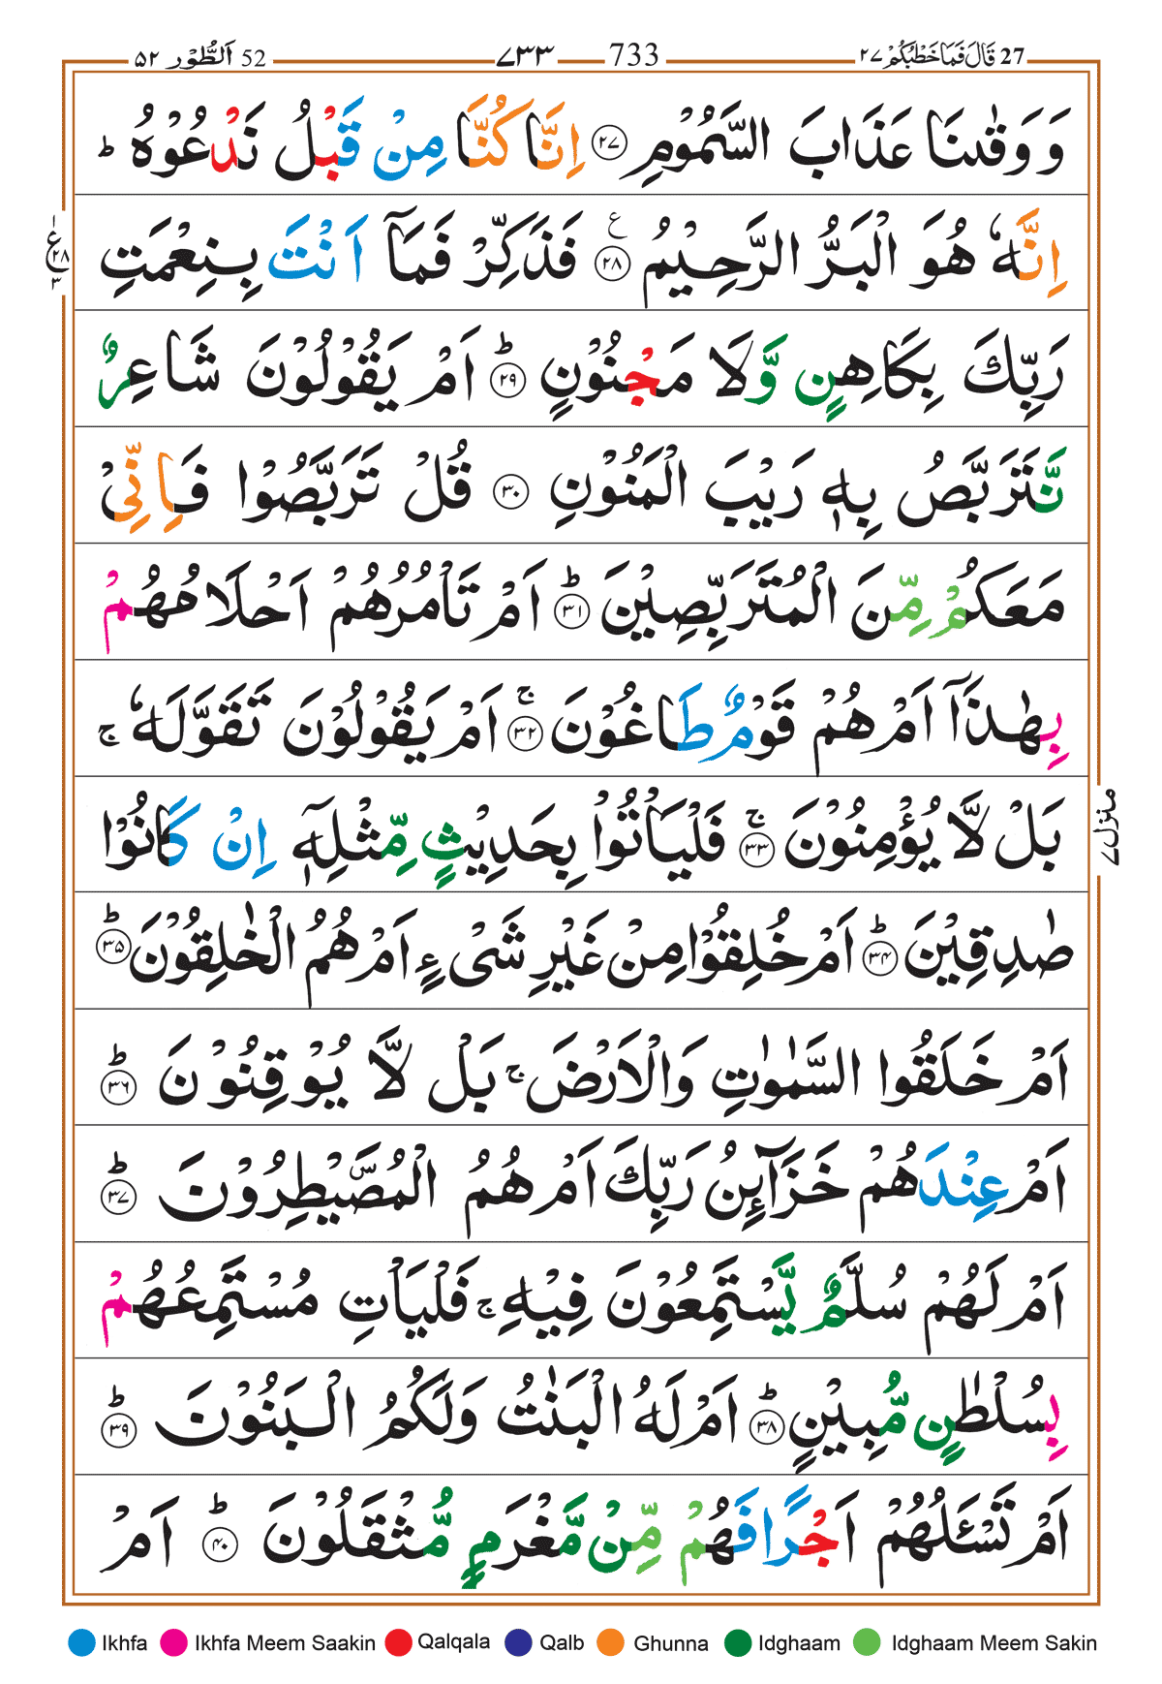 27 قَالَ فَمَا خَطْبُكُمْ ٢٧ 733 ٧٣٣ 52 اَلطُّوْر ٥٢
وَ وَقٰىنَا عَذَابَ السَّمُوْمِ ﴿۲۷﴾ اِنَّا كُنَّا مِنْ قَبْلُ نَدْعُوْهُ ؕ
اِنَّهٗ هُوَ الْبَرُّ الرَّحِيْمُ ﴿۲۸﴾ ع فَذَكِّرْ فَمَاۤ اَنْتَ بِنِعْمَتِ
رَبِّكَ بِكَاهِنٍ وَّلَا مَجْنُوْنٍ ؕ﴿۲۹﴾ اَمْ يَقُوْلُوْنَ شَاعِرٌ
نَّتَرَبَّصُ بِهٖ رَيْبَ الْمَنُوْنِ ﴿۳۰﴾ قُلْ تَرَبَّصُوْا فَاِنِّىْ
مَعَكُمْ مِّنَ الْمُتَرَبِّصِيْنَ ؕ﴿۳۱﴾ اَمْ تَاْمُرُهُمْ اَحْلَامُهُمْ
بِهٰذَاۤ اَمْ هُمْ قَوْمٌ طَاغُوْنَ ۚ﴿۳۲﴾ اَمْ يَقُوْلُوْنَ تَقَوَّلَهٗ ۚ
بَلْ لَّا يُؤْمِنُوْنَ ۚ﴿۳۳﴾ فَلْيَاْتُوْا بِحَدِيْثٍ مِّثْلِهٖۤ اِنْ كَانُوْا
صٰدِقِيْنَ ؕ﴿۳۴﴾ اَمْ خُلِقُوْا مِنْ غَيْرِ شَىْءٍ اَمْ هُمُ الْخٰلِقُوْنَ ؕ﴿۳۵﴾
اَمْ خَلَقُوا السَّمٰوٰتِ وَالْاَرْضَ ۚ بَلْ لَّا يُوْقِنُوْنَ ؕ﴿۳۶﴾
اَمْ عِنْدَهُمْ خَزَآئِنُ رَبِّكَ اَمْ هُمُ الْمُصَۜيْطِرُوْنَ ؕ﴿۳۷﴾
اَمْ لَهُمْ سُلَّمٌ يَّسْتَمِعُوْنَ فِيْهِ ۚ فَلْيَاْتِ مُسْتَمِعُهُمْ
بِسُلْطٰنٍ مُّبِيْنٍ ؕ﴿۳۸﴾ اَمْ لَهُ الْبَنٰتُ وَلَكُمُ الْبَنُوْنَ ؕ﴿۳۹﴾
اَمْ تَسْئَلُهُمْ اَجْرًا فَهُمْ مِّنْ مَّغْرَمٍ مُّثْقَلُوْنَ ؕ﴿۴۰﴾ اَمْ
١ ع ٢٨ ٣
منزل ٧
Ikhfa Ikhfa Meem Saakin Qalqala Qalb Ghunna Idghaam Idghaam Meem Sakin